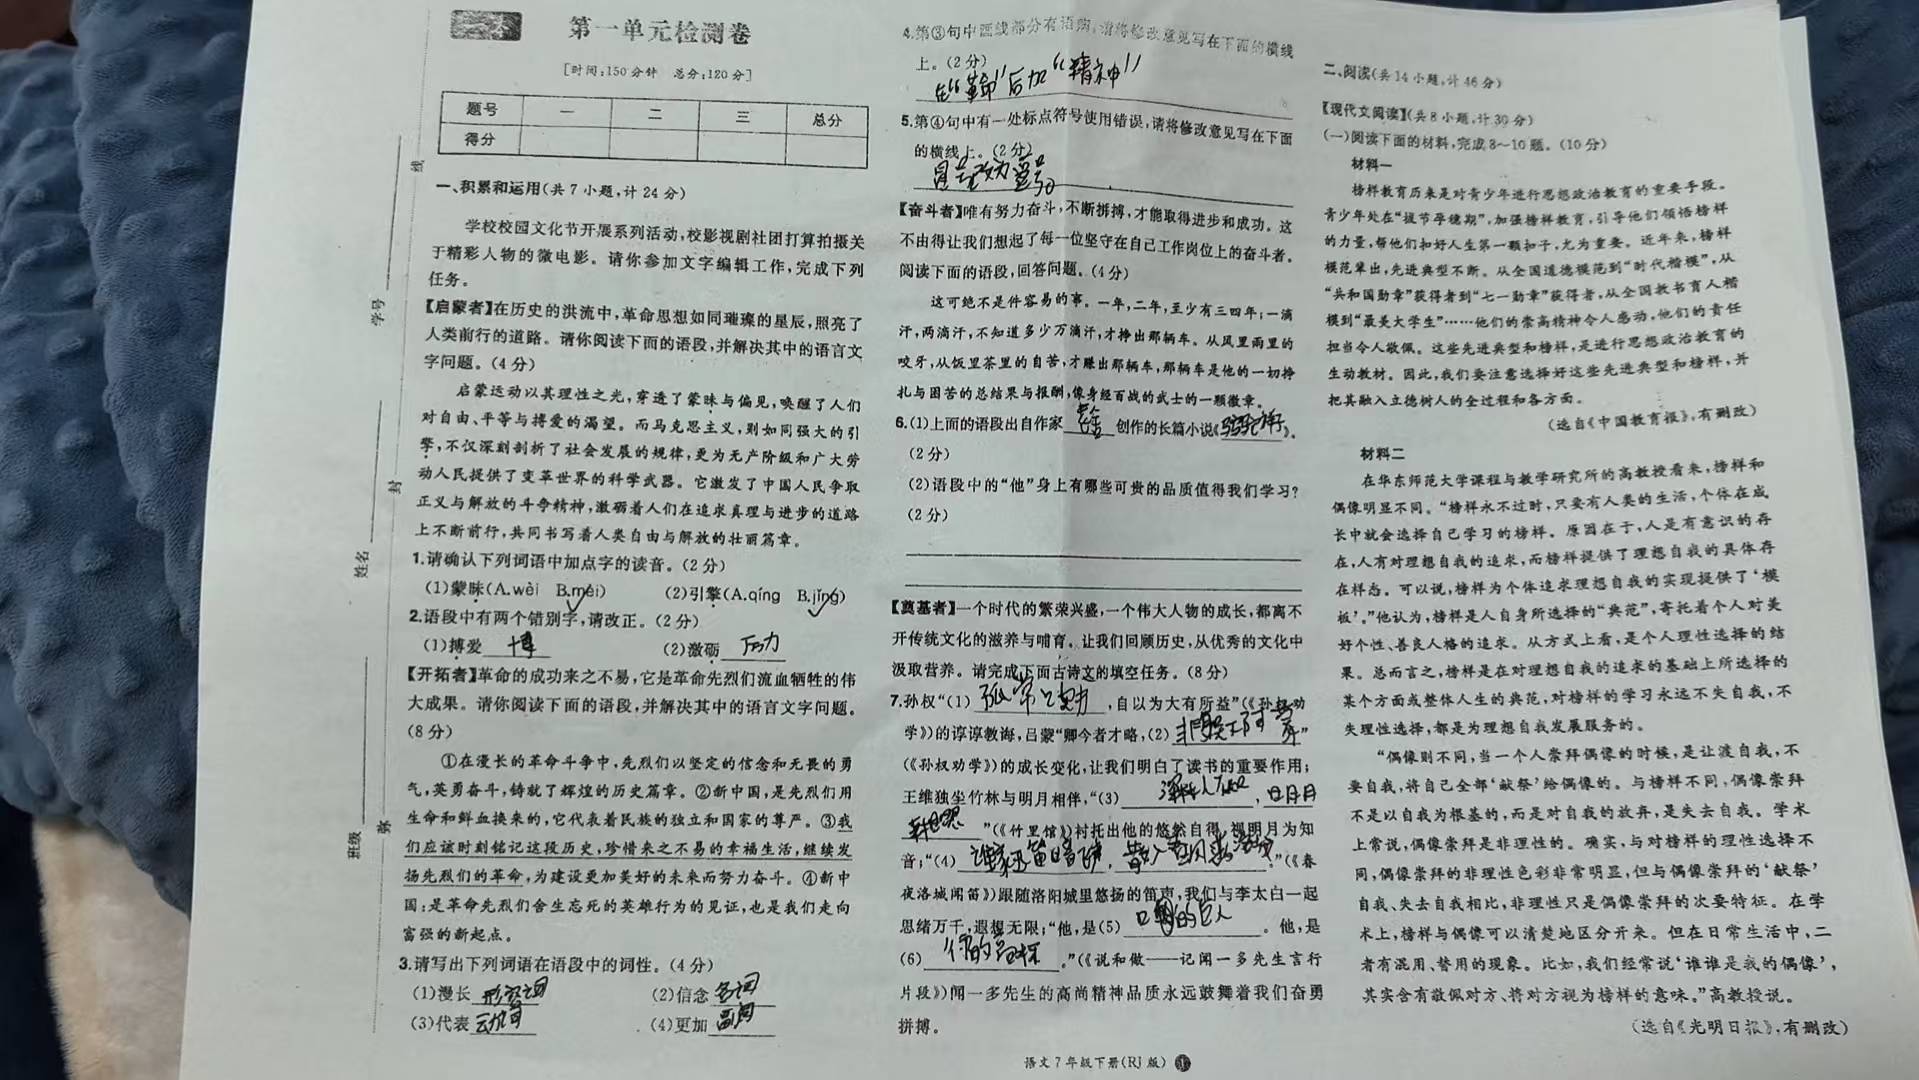 第一单元检测卷
[时间:150分钟 总分:120分]
题号 一 二 三 总分
得分
一、积累和运用(共7小题,计24分)
学校校园文化节开展系列活动,校影视剧社团打算拍摄关
于精彩人物的微电影。请你参加文字编辑工作,完成下列
任务。
【启蒙者】在历史的洪流中,革命思想如同璀璨的星辰,照亮了
人类前行的道路。请你阅读下面的语段,并解决其中的语言文
字问题。(4分)
启蒙运动以其理性之光,穿透了蒙昧与偏见,唤醒了人们
对自由、平等与搏爱的渴望。而马克思主义,则如同强大的引
擎,不仅深刻剖析了社会发展的规律,更为无产阶级和广大劳
动人民提供了变革世界的科学武器。它激发了中国人民争取
正义与解放的斗争精神,激砺着人们在追求真理与进步的道路
上不断前行,共同书写着人类自由与解放的壮丽篇章。
1.请确认下列词语中加点字的读音。(2分)
(1)蒙昧(A.wèi B.mèi) (2)引擎(A.qíng B.jǐng)
2.语段中有两个错别字,请改正。(2分)
(1)搏爱 博 (2)激砺 励
【开拓者】革命的成功来之不易,它是革命先烈们流血牺牲的伟
大成果。请你阅读下面的语段,并解决其中的语言文字问题。
(8分)
①在漫长的革命斗争中,先烈们以坚定的信念和无畏的勇
气,英勇奋斗,铸就了辉煌的历史篇章。②新中国,是先烈们用
生命和鲜血换来的,它代表着民族的独立和国家的尊严。③我
们应该时刻铭记这段历史,珍惜来之不易的幸福生活,继续发
扬先烈们的革命,为建设更加美好的未来而努力奋斗。④新中
国:是革命先烈们舍生忘死的英雄行为的见证,也是我们走向
富强的新起点。
3.请写出下列词语在语段中的词性。(4分)
(1)漫长 形容词 (2)信念 名词
(3)代表 动词 (4)更加 副词
学号
姓名
班级
线
封
弥
4.第③句中画线部分有语病,请将修改意见写在下面的横线
上。(2分)
在“革命”后加“精神”
5.第④句中有一处标点符号使用错误,请将修改意见写在下面
的横线上。(2分)
冒号改为逗号
【奋斗者】唯有努力奋斗,不断拼搏,才能取得进步和成功。这
不由得让我们想起了每一位坚守在自己工作岗位上的奋斗者。
阅读下面的语段,回答问题。(4分)
这可绝不是件容易的事。一年,二年,至少有三四年;一滴
汗,两滴汗,不知道多少万滴汗,才挣出那辆车。从风里雨里的
咬牙,从饭里茶里的自苦,才赚出那辆车,那辆车是他的一切挣
扎与困苦的总结果与报酬,像身经百战的武士的一颗徽章。
6.(1)上面的语段出自作家 老舍 创作的长篇小说《骆驼祥子》。
(2分)
(2)语段中的“他”身上有哪些可贵的品质值得我们学习?
(2分)
【奠基者】一个时代的繁荣兴盛,一个伟大人物的成长,都离不
开传统文化的滋养与哺育。让我们回顾历史,从优秀的文化中
汲取营养。请完成下面古诗文的填空任务。(8分)
7.孙权“(1) 孤常读书 ,自以为大有所益”(《孙权劝
学》)的谆谆教诲,吕蒙“卿今者才略,(2) 非复吴下阿蒙 ”
(《孙权劝学》)的成长变化,让我们明白了读书的重要作用;
王维独坐竹林与明月相伴,“(3) 深林人不知 , 明月
来相照 ”(《竹里馆》)衬托出他的悠然自得,视明月为知
音;“(4) 谁家玉笛暗飞声,散入春风满洛城 。”(《春
夜洛城闻笛》)跟随洛阳城里悠扬的笛声,我们与李太白一起
思绪万千,遐想无限;“他,是(5) 口的巨人 。他,是
(6) 行的高标 。”(《说和做——记闻一多先生言行
片段》)闻一多先生的高尚精神品质永远鼓舞着我们奋勇
拼搏。
二、阅读(共14小题,计46分)
【现代文阅读】(共8小题,计30分)
(一)阅读下面的材料,完成8~10题。(10分)
材料一
榜样教育历来是对青少年进行思想政治教育的重要手段。
青少年处在“拔节孕穗期”,加强榜样教育,引导他们领悟榜样
的力量,帮他们扣好人生第一颗扣子,尤为重要。近年来,榜样
模范辈出,先进典型不断。从全国道德模范到“时代楷模”,从
“共和国勋章”获得者到“七一勋章”获得者,从全国教书育人楷
模到“最美大学生”……他们的崇高精神令人感动,他们的责任
担当令人敬佩。这些先进典型和榜样,是进行思想政治教育的
生动教材。因此,我们要注意选择好这些先进典型和榜样,并
把其融入立德树人的全过程和各方面。
(选自《中国教育报》,有删改)
材料二
在华东师范大学课程与教学研究所的高教授看来,榜样和
偶像明显不同。“榜样永不过时,只要有人类的生活,个体在成
长中就会选择自己学习的榜样。原因在于,人是有意识的存
在,人有对理想自我的追求,而榜样提供了理想自我的具体存
在样态。可以说,榜样为个体追求理想自我的实现提供了‘模
板’。”他认为,榜样是人自身所选择的“典范”,寄托着个人对美
好个性、善良人格的追求。从方式上看,是个人理性选择的结
果。总而言之,榜样是在对理想自我的追求的基础上所选择的
某个方面或整体人生的典范,对榜样的学习永远不失自我,不
失理性选择,都是为理想自我发展服务的。
“偶像则不同,当一个人崇拜偶像的时候,是让渡自我,不
要自我,将自己全部‘献祭’给偶像的。与榜样不同,偶像崇拜
不是以自我为根基的,而是对自我的放弃,是失去自我。学术
上常说,偶像崇拜是非理性的。确实,与对榜样的理性选择不
同,偶像崇拜的非理性色彩非常明显,但与偶像崇拜的‘献祭’
自我、失去自我相比,非理性只是偶像崇拜的次要特征。在学
术上,榜样与偶像可以清楚地区分开来。但在日常生活中,二
者有混用、替用的现象。比如,我们经常说‘谁谁是我的偶像’,
其实含有敬佩对方、将对方视为榜样的意味。”高教授说。
(选自《光明日报》,有删改)
语文7年级下册(RJ版)